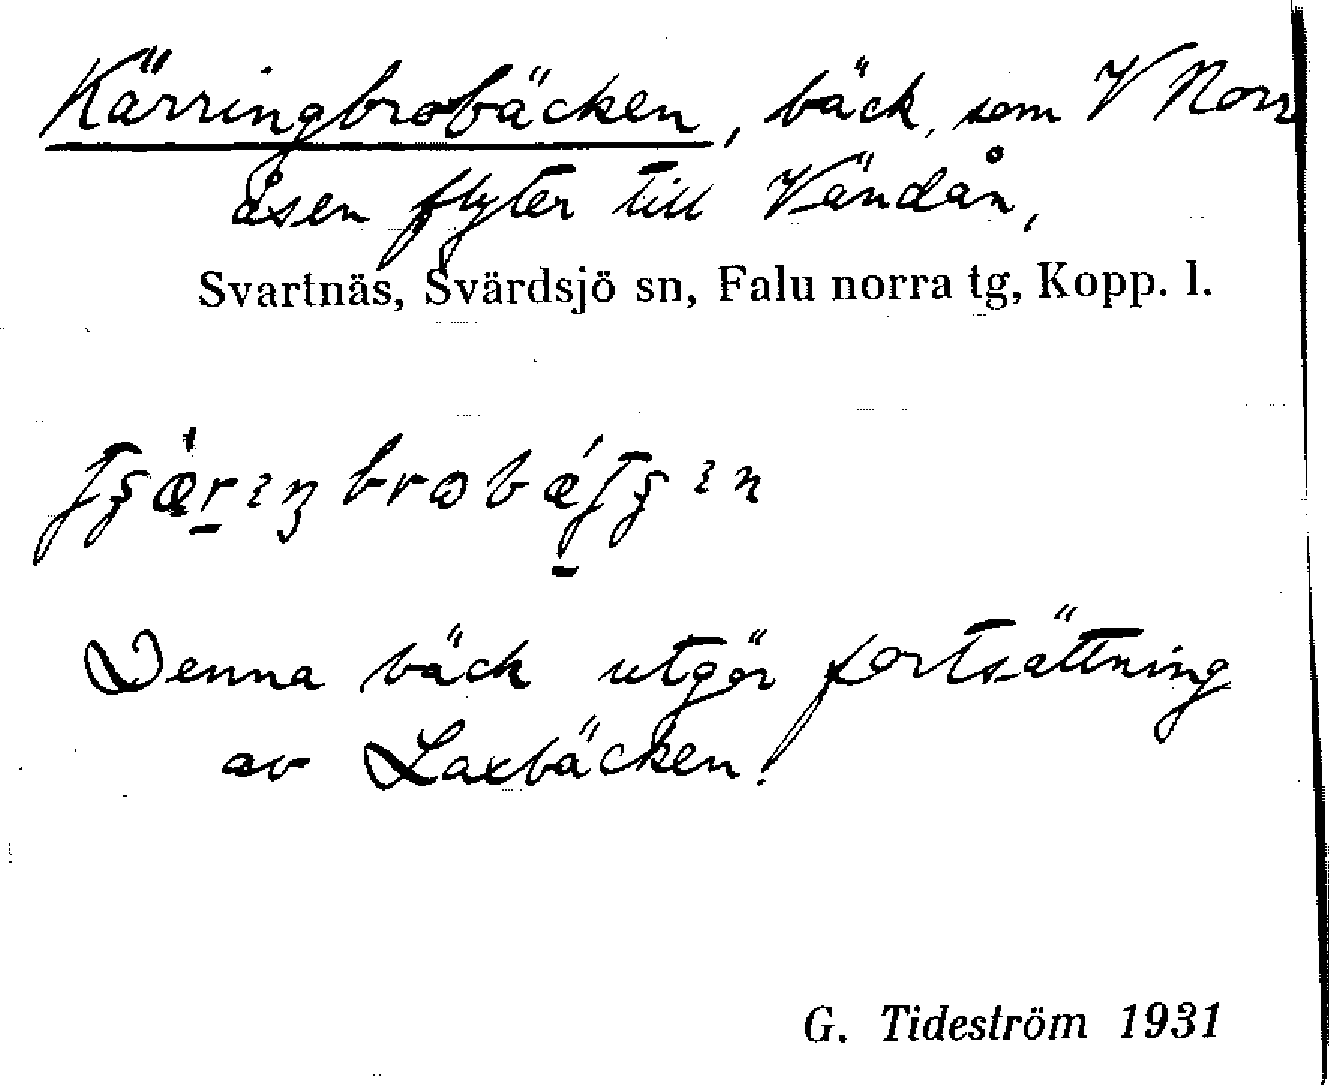 Kärringbrobäcken, bäck, som V Norr
åsen flyter till Vändån,
Svartnäs, Svärdsjö sn, Falu norra tg, Kopp. l.
Denna bäck utgör fortsättning
av Laxbäcken.
G. Tideström 1931